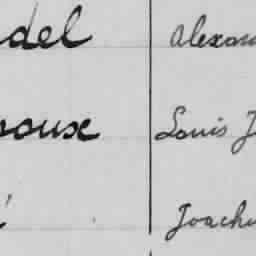 del Alexan
oux Louis J
Joachi